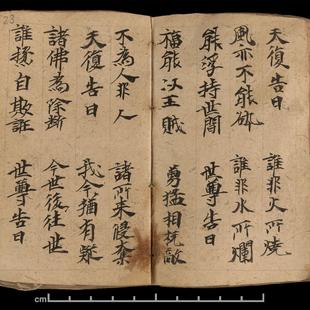 天復告曰　誰非火所燒
風亦不能破　誰非水所爛
能浮持世間　世尊告曰
福能以王賊　勇猛相抗敵
不為人非人　諸所來侵奪
天復告曰　我今猶有疑
諸佛為除斷　今世後往世
誰揉自欺誑　世尊告曰
23
cm